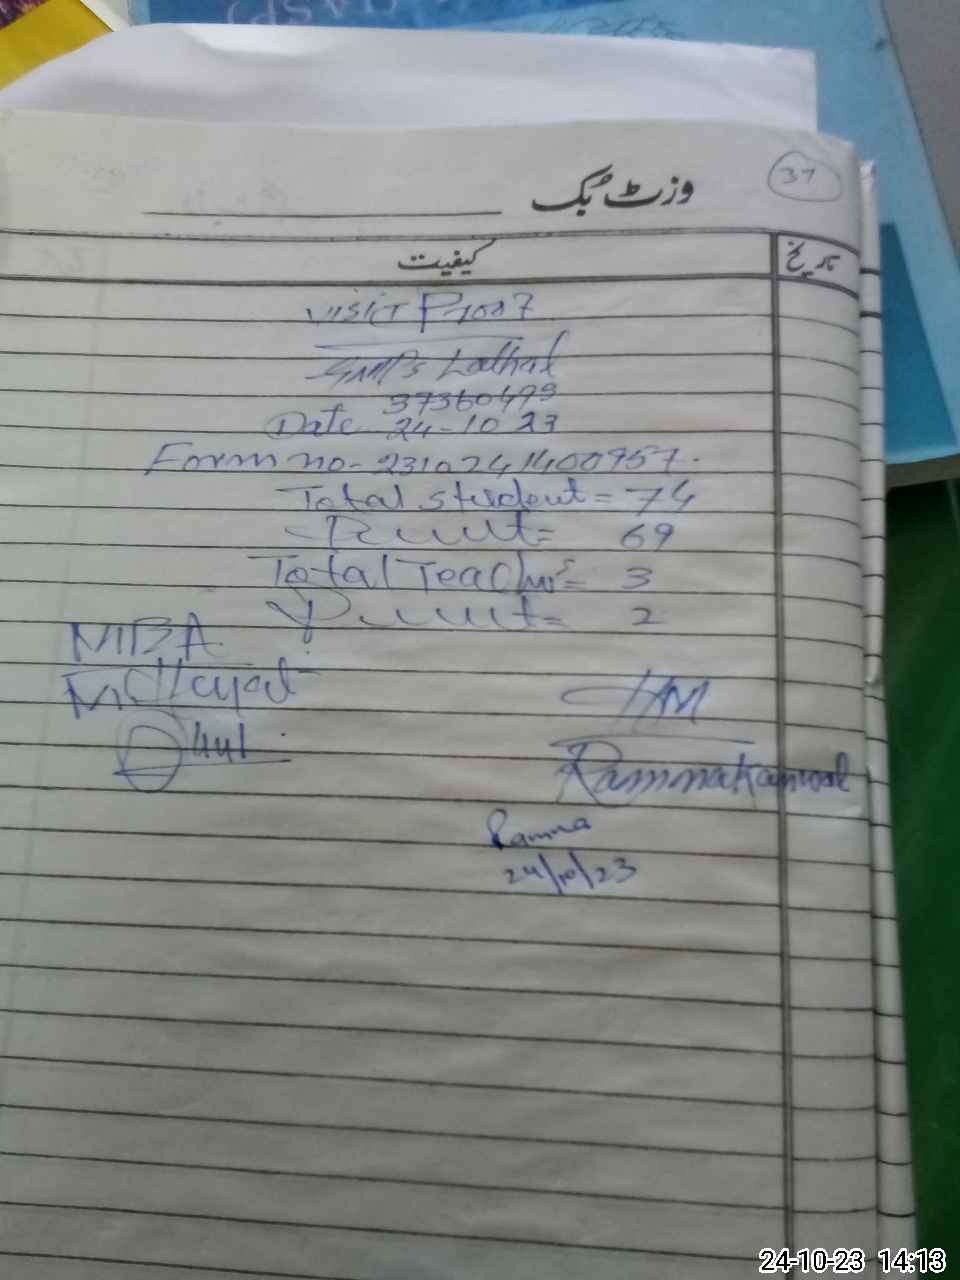 37
وزٹ بک
کیفیت
تاریخ
Visit Proof
GMPS
37360499
Date 24-10-23
Form no- 2310241400957.
Total student = 74
69
Total Teacher's = 3
2
MBA
M Hayat
HM
Ramna Kanwal
Ramna
24/10/23
24-10-23 14:13